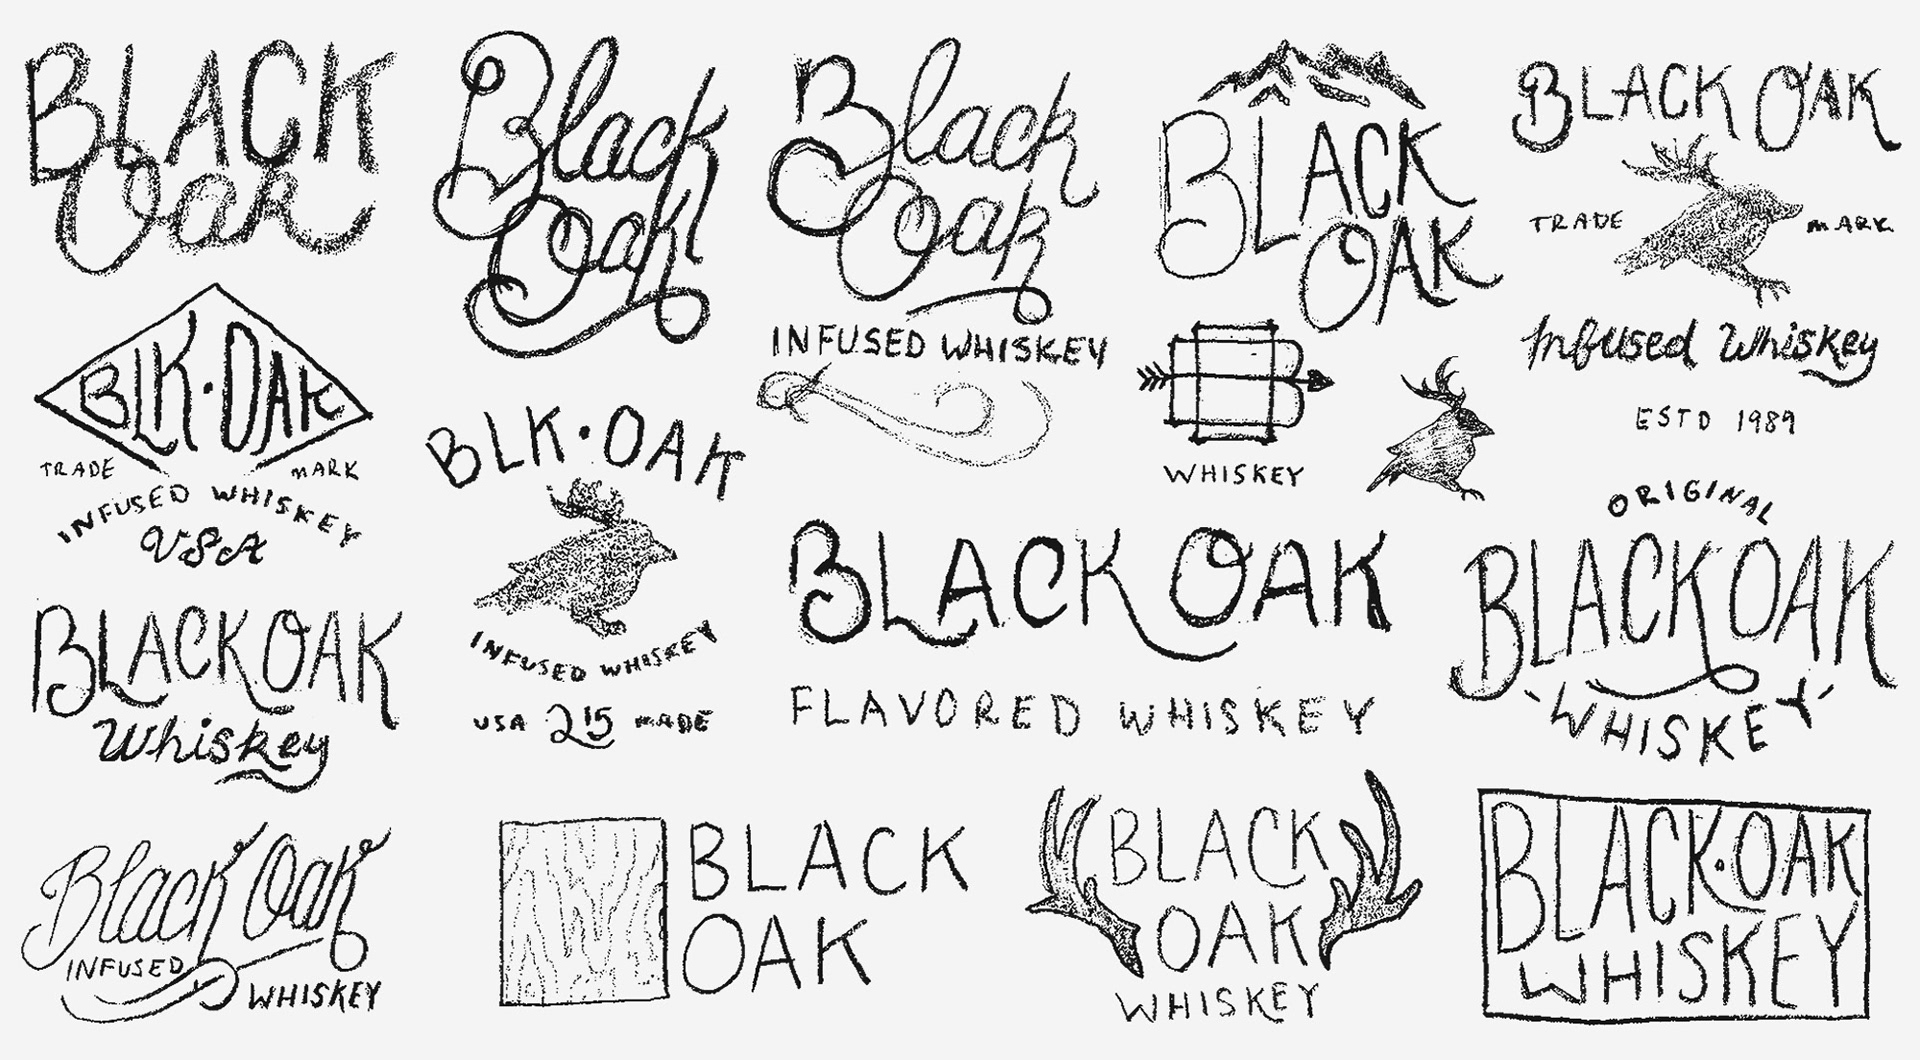 BLACK
Oak
Black
Oak
Black
Oak
INFUSED WHISKEY
BLACK
OAK
BLACK OAK
TRADE MARK
Infused Whiskey
ESTD 1989
BLK·OAK
TRADE MARK
INFUSED WHISKEY
USA
BLK·OAK
INFUSED WHISKEY
USA 215 MADE
WHISKEY
BLACK OAK
FLAVORED WHISKEY
ORIGINAL
BLACK OAK
'WHISKEY'
BLACK OAK
Whiskey
Black Oak
INFUSED
WHISKEY
BLACK
OAK
BLACK
OAK
WHISKEY
BLACK·OAK
WHISKEY